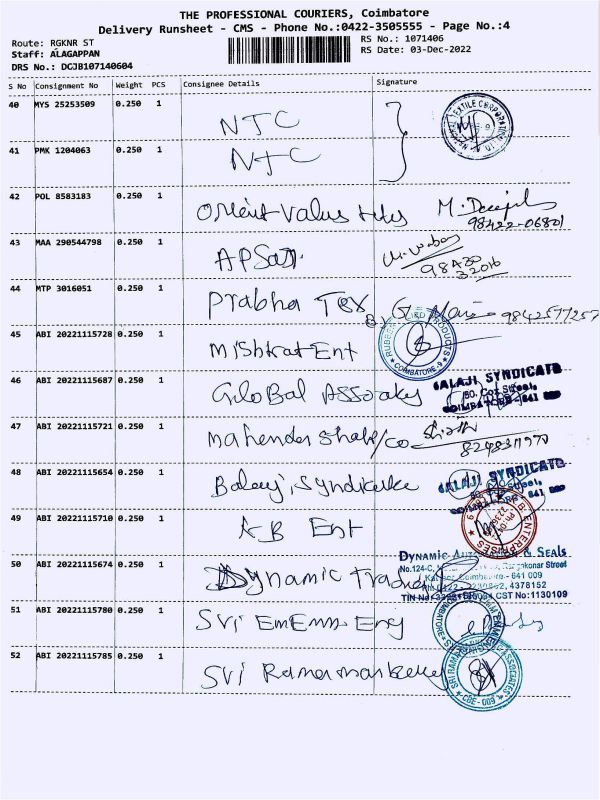 THE PROFESSIONAL COURIERS, Coimbatore
Delivery Runsheet - CMS - Phone No.:0422-3505555 - Page No.:4
Route: RGKNR ST
RS No.: 1071406
Staff: ALAGAPPAN
RS Date: 03-Dec-2022
DRS No.: DCJB107140604
S No Consignment No Weight PCS Consignee Details Signature
40 MYS 25253509 0.250 1 NTC
41 PMK 1204063 0.250 1 NTC
42 POL 8583183 0.250 1 Orient Values
98422-06801
43 MAA 290544798 0.250 1
98430
32016
44 MTP 3016051 0.250 1 Prabha Tex 9842577257
COIMBATORE-9
45 ABI 20221115728 0.250 1 Ent
46 ABI 20221115687 0.250 1 Global
BALAJI SYNDICATE
COIMBATORE - 641
47 ABI 20221115721 0.250 1 Mahender Shah/co
8248311970
48 ABI 20221115654 0.250 1 Balaji Syndicate
BALAJI SYNDICATE
49 ABI 20221115710 0.250 1 KB Ent
ENTERPRISES
50 ABI 20221115674 0.250 1 Dynamic
DYNAMIC & SEALS
No.124-C, Rangakonar Street
641 009
4378152
CST No:1130109
51 ABI 20221115780 0.250 1 Sri
52 ABI 20221115785 0.250 1 Sri
SRI RAMA ASSOCIATES
CBE-009